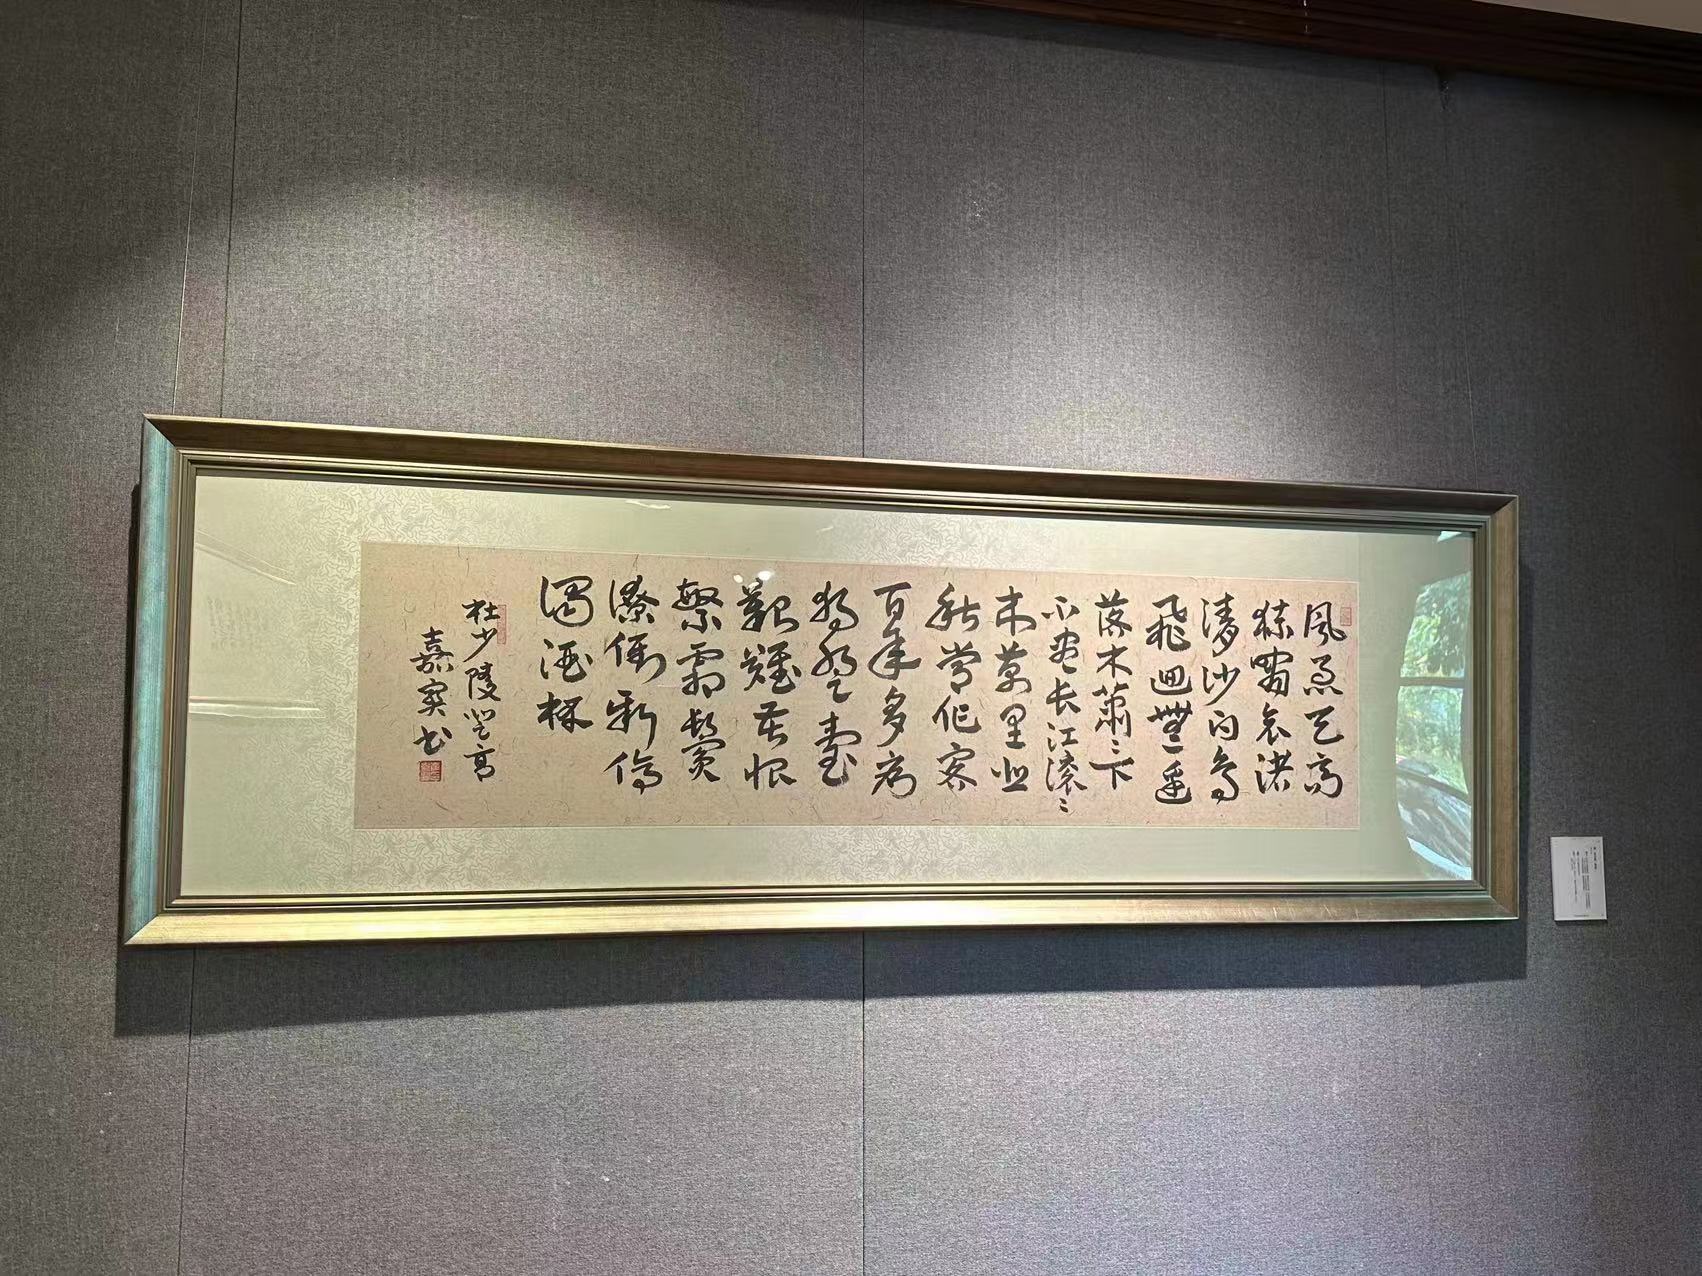 風急天高
猿嘯哀渚
清沙白鳥
飛迴無邊
落木蕭〻下
不盡長江滾〻
来萬里悲
秋常作客
百年多病
獨登臺
艱難苦恨
繁霜鬢
潦倒新停
濁酒杯
杜少陵登高
嘉書